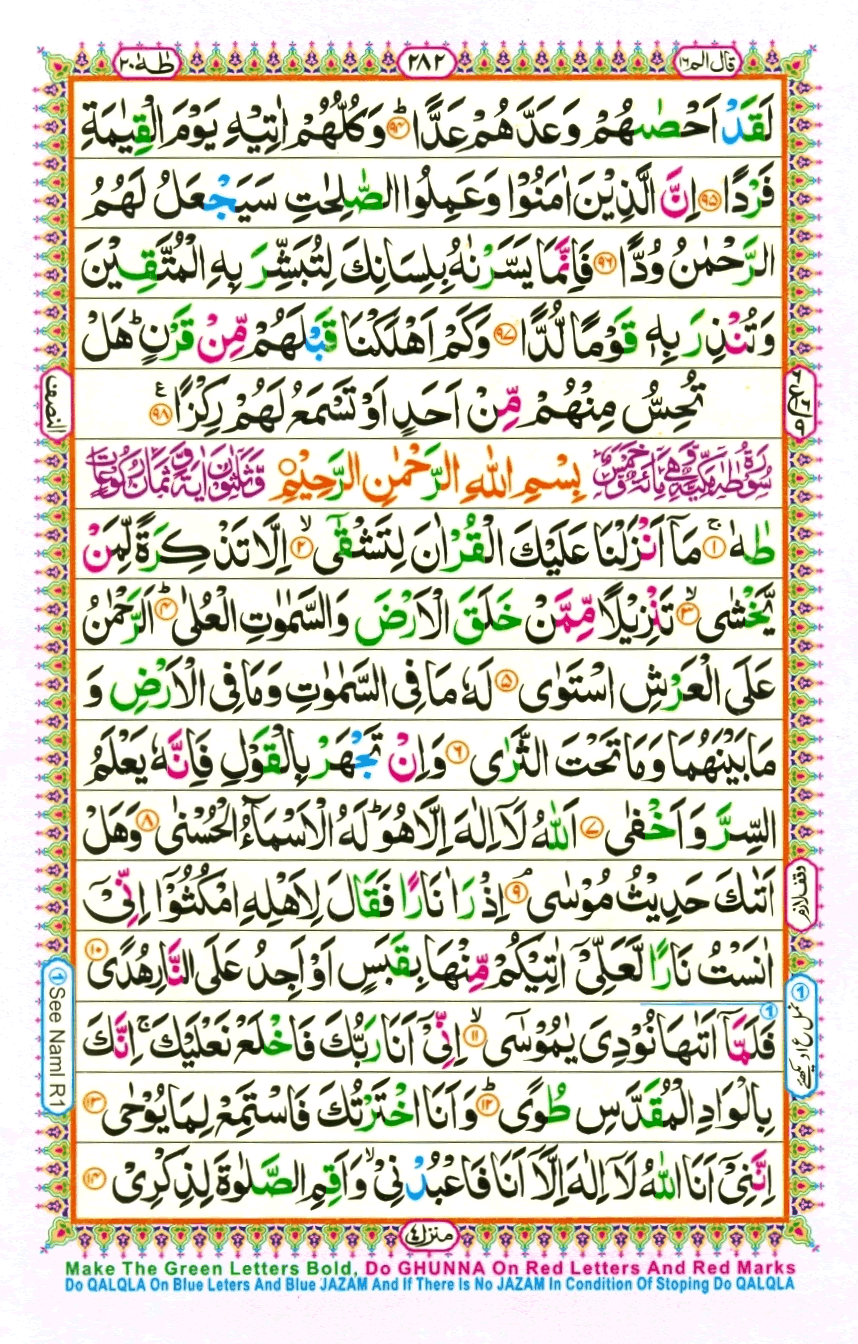 قال الم ١٦
٢٨٢
طٰهٰ ٢٠
لَقَدْ اَحْصٰىهُمْ وَعَدَّهُمْ عَدًّا ؕ‏﴿۹۴﴾ وَكُلُّهُمْ اٰتِيْهِ يَوْمَ الْقِيٰمَةِ
فَرْدًا ﴿۹۵﴾ اِنَّ الَّذِيْنَ اٰمَنُوْا وَعَمِلُوا الصّٰلِحٰتِ سَيَجْعَلُ لَهُمُ
الرَّحْمٰنُ وُدًّا ﴿۹۶﴾ فَاِنَّمَا يَسَّرْنٰهُ بِلِسَانِكَ لِتُبَشِّرَ بِهِ الْمُتَّقِيْنَ
وَتُنْذِرَ بِهٖ قَوْمًا لُّدًّا ﴿۹۷﴾ وَكَمْ اَهْلَكْنَا قَبْلَهُمْ مِّنْ قَرْنٍ ؕ هَلْ
تُحِسُّ مِنْهُمْ مِّنْ اَحَدٍ اَوْ تَسْمَعُ لَهُمْ رِكْزًا ﴿۹۸﴾ ع
النصف
سُوْرَةُ طٰهٰ مَكِّيَّةٌ وَّهِيَ مِائَةٌ وَّخَمْسٌ بِسْمِ اللّٰهِ الرَّحْمٰنِ الرَّحِيْمِ وَّثَلٰثُوْنَ اٰيَةً وَّثَمَانُ رُكُوْعَاتٍ
طٰهٰ ۚ﴿۱﴾ مَاۤ اَنْزَلْنَا عَلَيْكَ الْقُرْاٰنَ لِتَشْقٰٓى ۙ﴿۲﴾ اِلَّا تَذْكِرَةً لِّمَنْ
يَّخْشٰى ۙ﴿۳﴾ تَنْزِيْلًا مِّمَّنْ خَلَقَ الْاَرْضَ وَالسَّمٰوٰتِ الْعُلٰى ؕ﴿۴﴾ اَلرَّحْمٰنُ
عَلَى الْعَرْشِ اسْتَوٰى ﴿۵﴾ لَهٗ مَا فِى السَّمٰوٰتِ وَمَا فِى الْاَرْضِ وَ
مَا بَيْنَهُمَا وَمَا تَحْتَ الثَّرٰى ﴿۶﴾ وَاِنْ تَجْهَرْ بِالْقَوْلِ فَاِنَّهٗ يَعْلَمُ
السِّرَّ وَاَخْفٰى ﴿۷﴾ اَللّٰهُ لَاۤ اِلٰهَ اِلَّا هُوَ ؕ لَهُ الْاَسْمَآءُ الْحُسْنٰى ﴿۸﴾ وَهَلْ
وقف لازم
اَتٰىكَ حَدِيْثُ مُوْسٰى ۘ﴿۹﴾ اِذْ رَاٰ نَارًا فَقَالَ لِاَهْلِهِ امْكُثُوْۤا اِنِّىْۤ
اٰنَسْتُ نَارًا لَّعَلِّىْۤ اٰتِيْكُمْ مِّنْهَا بِقَبَسٍ اَوْ اَجِدُ عَلَى النَّارِ هُدًى ﴿۱۰﴾
فَلَمَّاۤ اَتٰىهَا نُوْدِىَ يٰمُوْسٰى ۙ﴿۱۱﴾ اِنِّىْۤ اَنَا رَبُّكَ فَاخْلَعْ نَعْلَيْكَ ۚ اِنَّكَ
① See Naml R1
بِالْوَادِ الْمُقَدَّسِ طُوًى ؕ﴿۱۲﴾ وَاَنَا اخْتَرْتُكَ فَاسْتَمِعْ لِمَا يُوْحٰى ﴿۱۳﴾
اِنَّنِىْۤ اَنَا اللّٰهُ لَاۤ اِلٰهَ اِلَّاۤ اَنَا فَاعْبُدْنِىْ ۙ وَاَقِمِ الصَّلٰوةَ لِذِكْرِىْ ﴿۱۴﴾
منزل ٤
Make The Green Letters Bold, Do GHUNNA On Red Letters And Red Marks
Do QALQLA On Blue Leters And Blue JAZAM And If There Is No JAZAM In Condition Of Stoping Do QALQLA